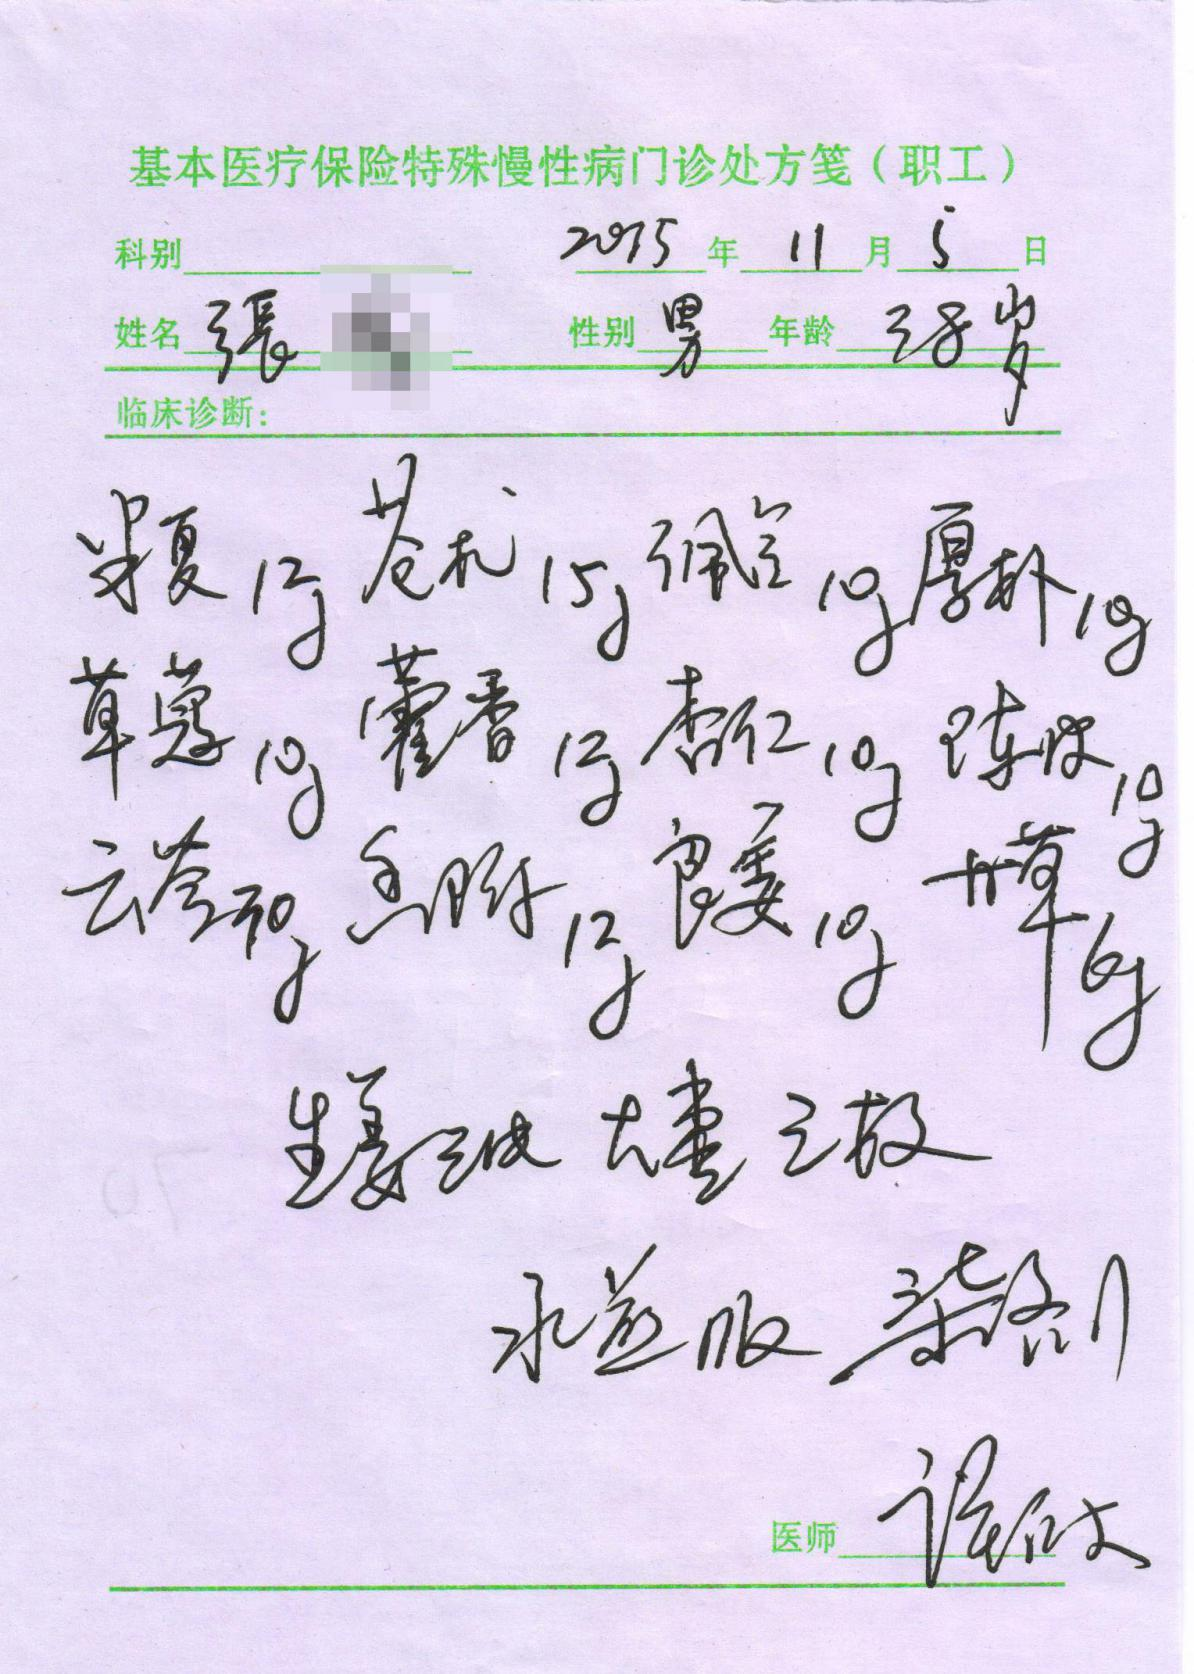 基本医疗保险特殊慢性病门诊处方笺（职工）
科别 2015 年 11 月 5 日
姓名 張 性别 男 年龄 岁
临床诊断：
半夏 12g 苍术 15g 佩兰 10g 厚朴 10g
草蔻 10g 藿香 12g 杏仁 10g 陈皮 10g
云苓 30g 香附 12g 良姜 10g 甘草 6g
生姜三块 大枣三枚
水煎服
医师